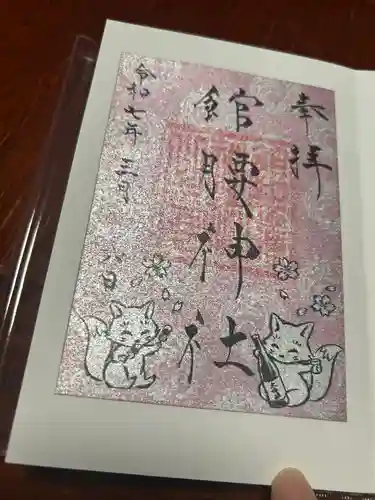 奉拝
館腰神社
令和七年 三月 六日